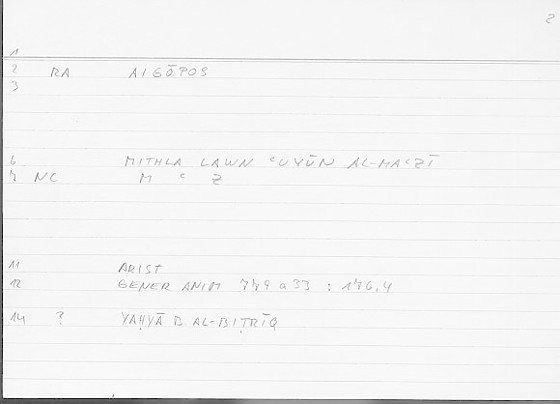 2
1
2 RA AIGŌPOS
3
6 MITHLA LAWN ʿUYŪN AL-MAʿZĪ
7 NC M ʿ Z
11 ARIST
12 GENER ANIM 779 a 33 : 176,4
14 ? YAḤYĀ B. AL-BIṬRĪQ